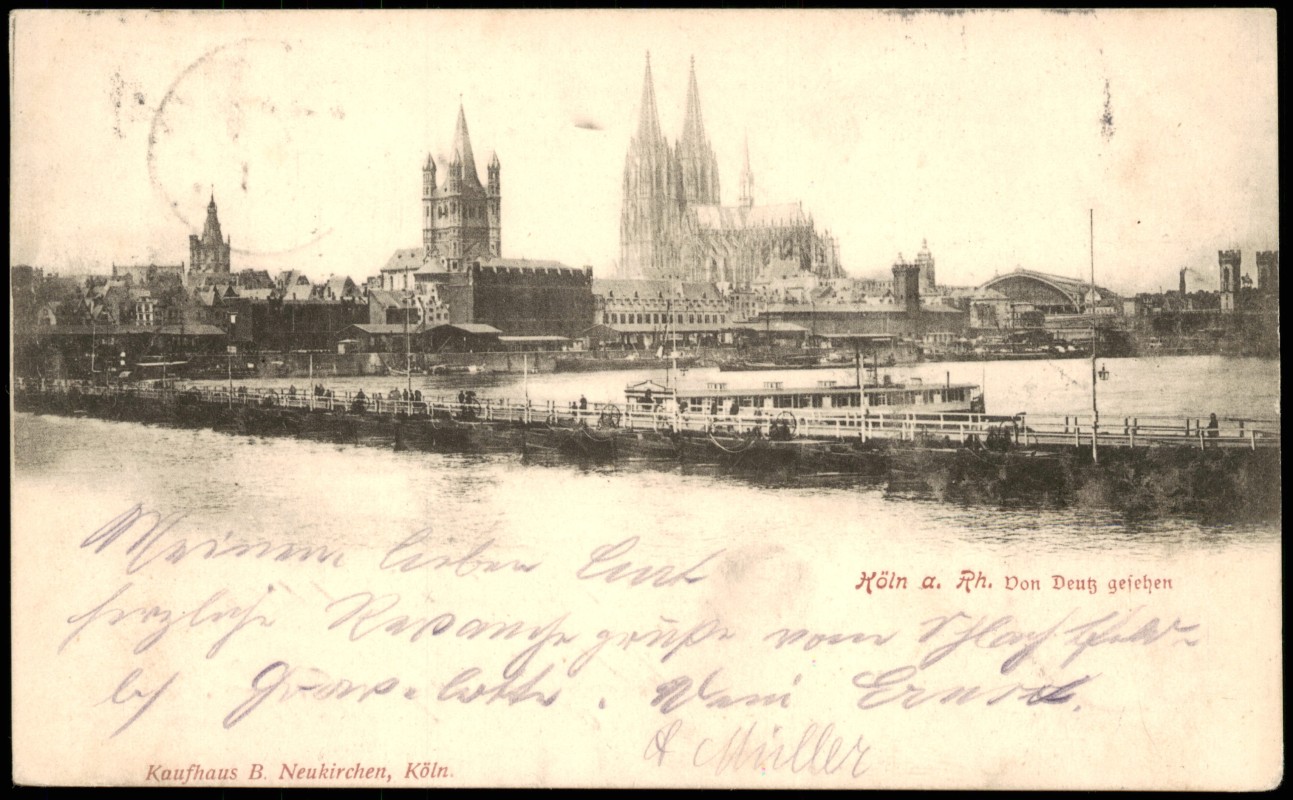 Köln a. Rh. Von Deutz gesehen
Meinem lieben Curt
herzliche Revanche grüße vom Schlachtfeld
bei Grave-lotte. Dein Ernst.
& Müller
Kaufhaus B. Neukirchen, Köln.